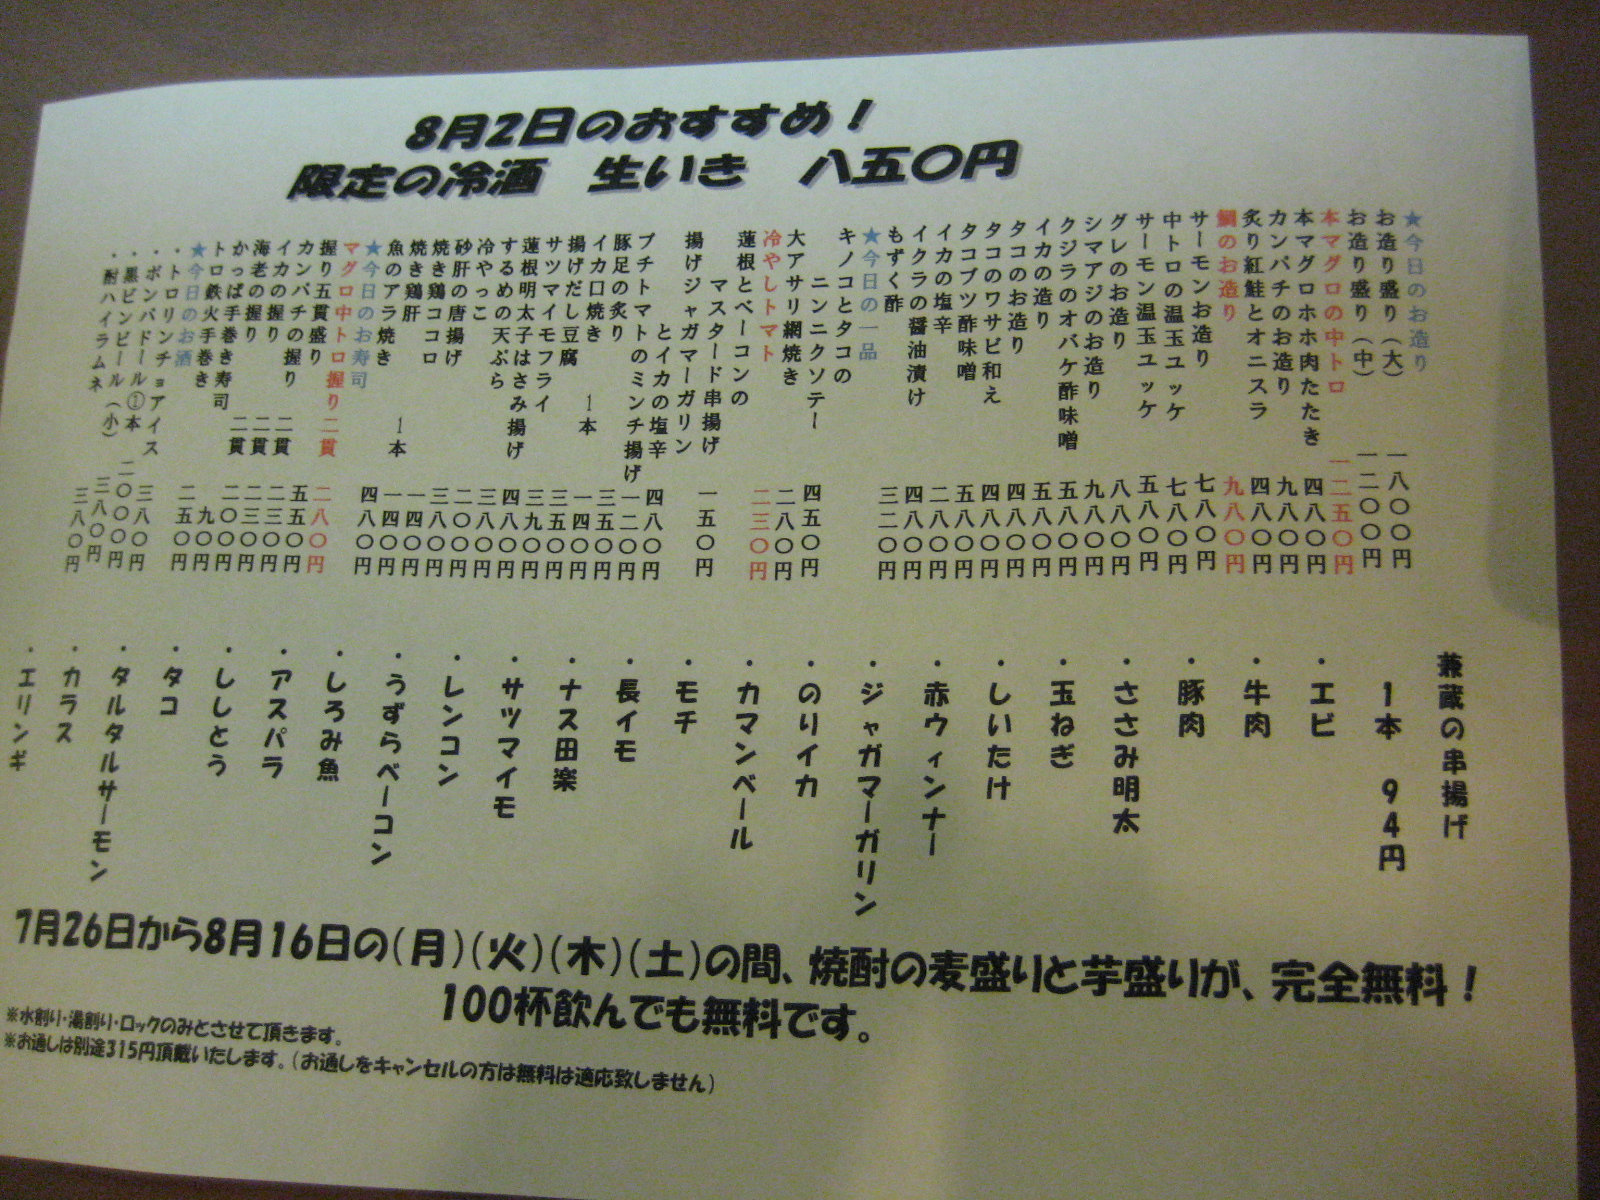 8月2日のおすすめ！
限定の冷酒　生いき　八五〇円
★今日のお造り
お造り盛り（大）　一八〇〇円
お造り盛り（中）　一二〇〇円
本マグロの中トロ　一二五〇円
本マグロホホ肉たたき　四八〇円
カンパチのお造り　九八〇円
炙り紅鮭とオニスラ　四八〇円
鯛のお造り　九八〇円
サーモンお造り　七八〇円
中トロの温玉ユッケ　七八〇円
サーモン温玉ユッケ　五八〇円
グレのお造り　八八〇円
シマアジのお造り　九八〇円
クジラのオバケ酢味噌　五八〇円
イカの造り　五八〇円
タコのお造り　四八〇円
タコのワサビ和え　四八〇円
タコブツ酢味噌　五八〇円
イカの塩辛　二八〇円
イクラの醤油漬け　四八〇円
もずく酢　三二〇円
★今日の一品
キノコとタコの
ニンニクソテー　四五〇円
大アサリ網焼き　二八〇円
冷やしトマト　二三〇円
蓮根とベーコンの
マスタード串揚げ　一五〇円
揚げジャガマーガリン
とイカの塩辛　四八〇円
プチトマトのミンチ揚げ　一二〇円
豚足の炙り　三五〇円
イカ口焼き　1本　一四〇円
揚げだし豆腐　三五〇円
サツマイモフライ　三九〇円
蓮根明太子はさみ揚げ　四八〇円
するめの天ぷら　三八〇円
冷やっこ　二〇〇円
砂肝の唐揚げ　三八〇円
焼き鶏ココロ　一四〇円
焼き鶏肝　一四〇円
魚のアラ焼き　1本　四八〇円
★今日のお寿司
マグロ中トロ握り　二貫　二八〇円
握り五貫盛り　五五〇円
カンパチの握り　二貫　二三〇円
イカの握り　二貫　二三〇円
海老の握り　二貫　二〇〇円
かっぱ手巻き寿司　九〇円
トロ鉄火手巻き　二五〇円
★今日のお酒
・トロリンチョアイス　三八〇円
・ボンバドール①本　二〇〇〇円
・黒ビンビール（小）　三八〇円
・酎ハイラムネ　三八〇円
兼蔵の串揚げ
1本　94円
・エビ
・牛肉
・豚肉
・ささみ明太
・玉ねぎ
・しいたけ
・赤ウィンナー
・ジャガマーガリン
・のりイカ
・カマンベール
・モチ
・長イモ
・ナス田楽
・サツマイモ
・レンコン
・うずらベーコン
・しろみ魚
・アスパラ
・ししとう
・タコ
・タルタルサーモン
・カラス
・エリンギ
7月26日から8月16日の(月)(火)(木)(土)の間、焼酎の麦盛りと芋盛りが、完全無料！
100杯飲んでも無料です。
※水割り・湯割り・ロックのみとさせて頂きます。
※お通しは別途315円頂戴いたします。(お通しをキャンセルの方は無料は適応致しません)